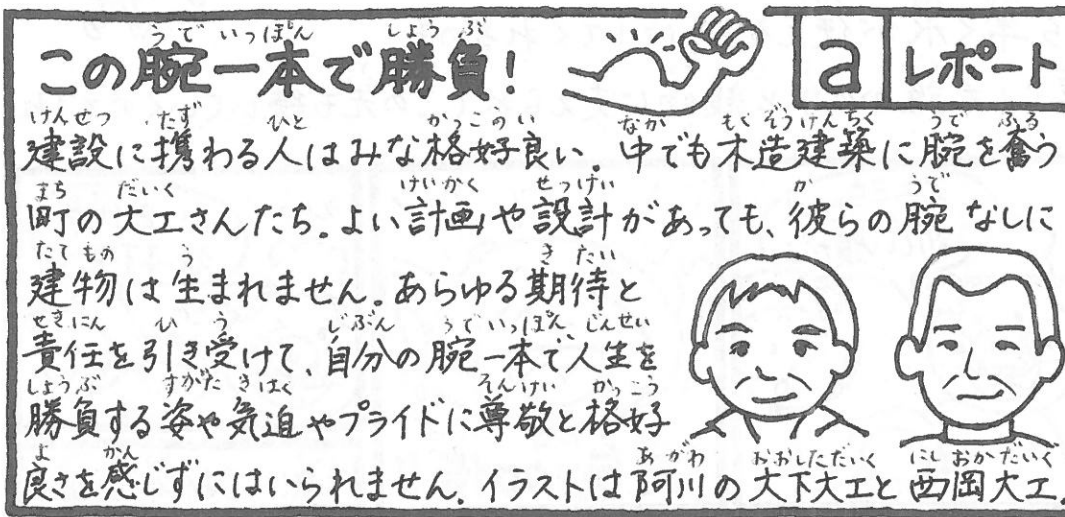 この腕一本で勝負!
a レポート
建設に携わる人はみな格好良い。中でも木造建築に腕を奮う
町の大工さんたち。よい計画や設計があっても、彼らの腕なしに
建物は生まれません。あらゆる期待と
責任を引き受けて、自分の腕一本で人生を
勝負する姿や気迫やプライドに尊敬と格好
良さを感じずにはいられません。イラストは阿川の大下大工と西岡大工。